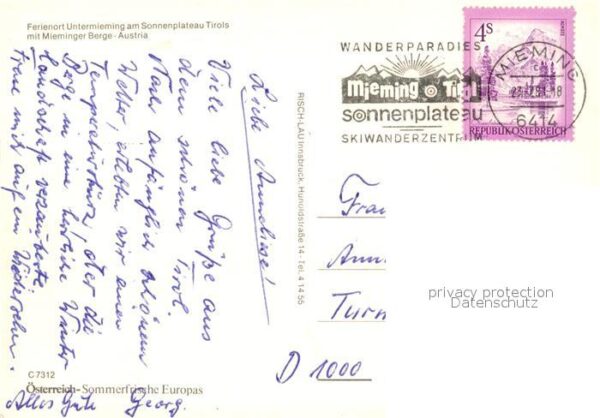 Ferienort Untermieming am Sonnenplateau Tirols
mit Mieminger Berge - Austria
Liebe Anneliese!
Viele liebe Grüße aus
dem schönen Tirol.
Nach anfänglich schönem
Wetter, erlebten wir einen
Temperatursturz, der die
Berge in eine herrliche Winter
landschaft verzauberte.
Freue mich auf ein Wiedersehn.
Alles Gute Georg.
C 7312
Österreich - Sommerfrische Europas
RISCH-LAU Innsbruck, Hunoldstraße 14 - Tel. 4 14 55
WANDERPARADIES
mieming Tirol
sonnenplateau
SKIWANDERZENTRUM
MIEMING
6414
4S
REPUBLIK ÖSTERREICH
Frau
Ann
Turn
D 1000
privacy protection
Datenschutz